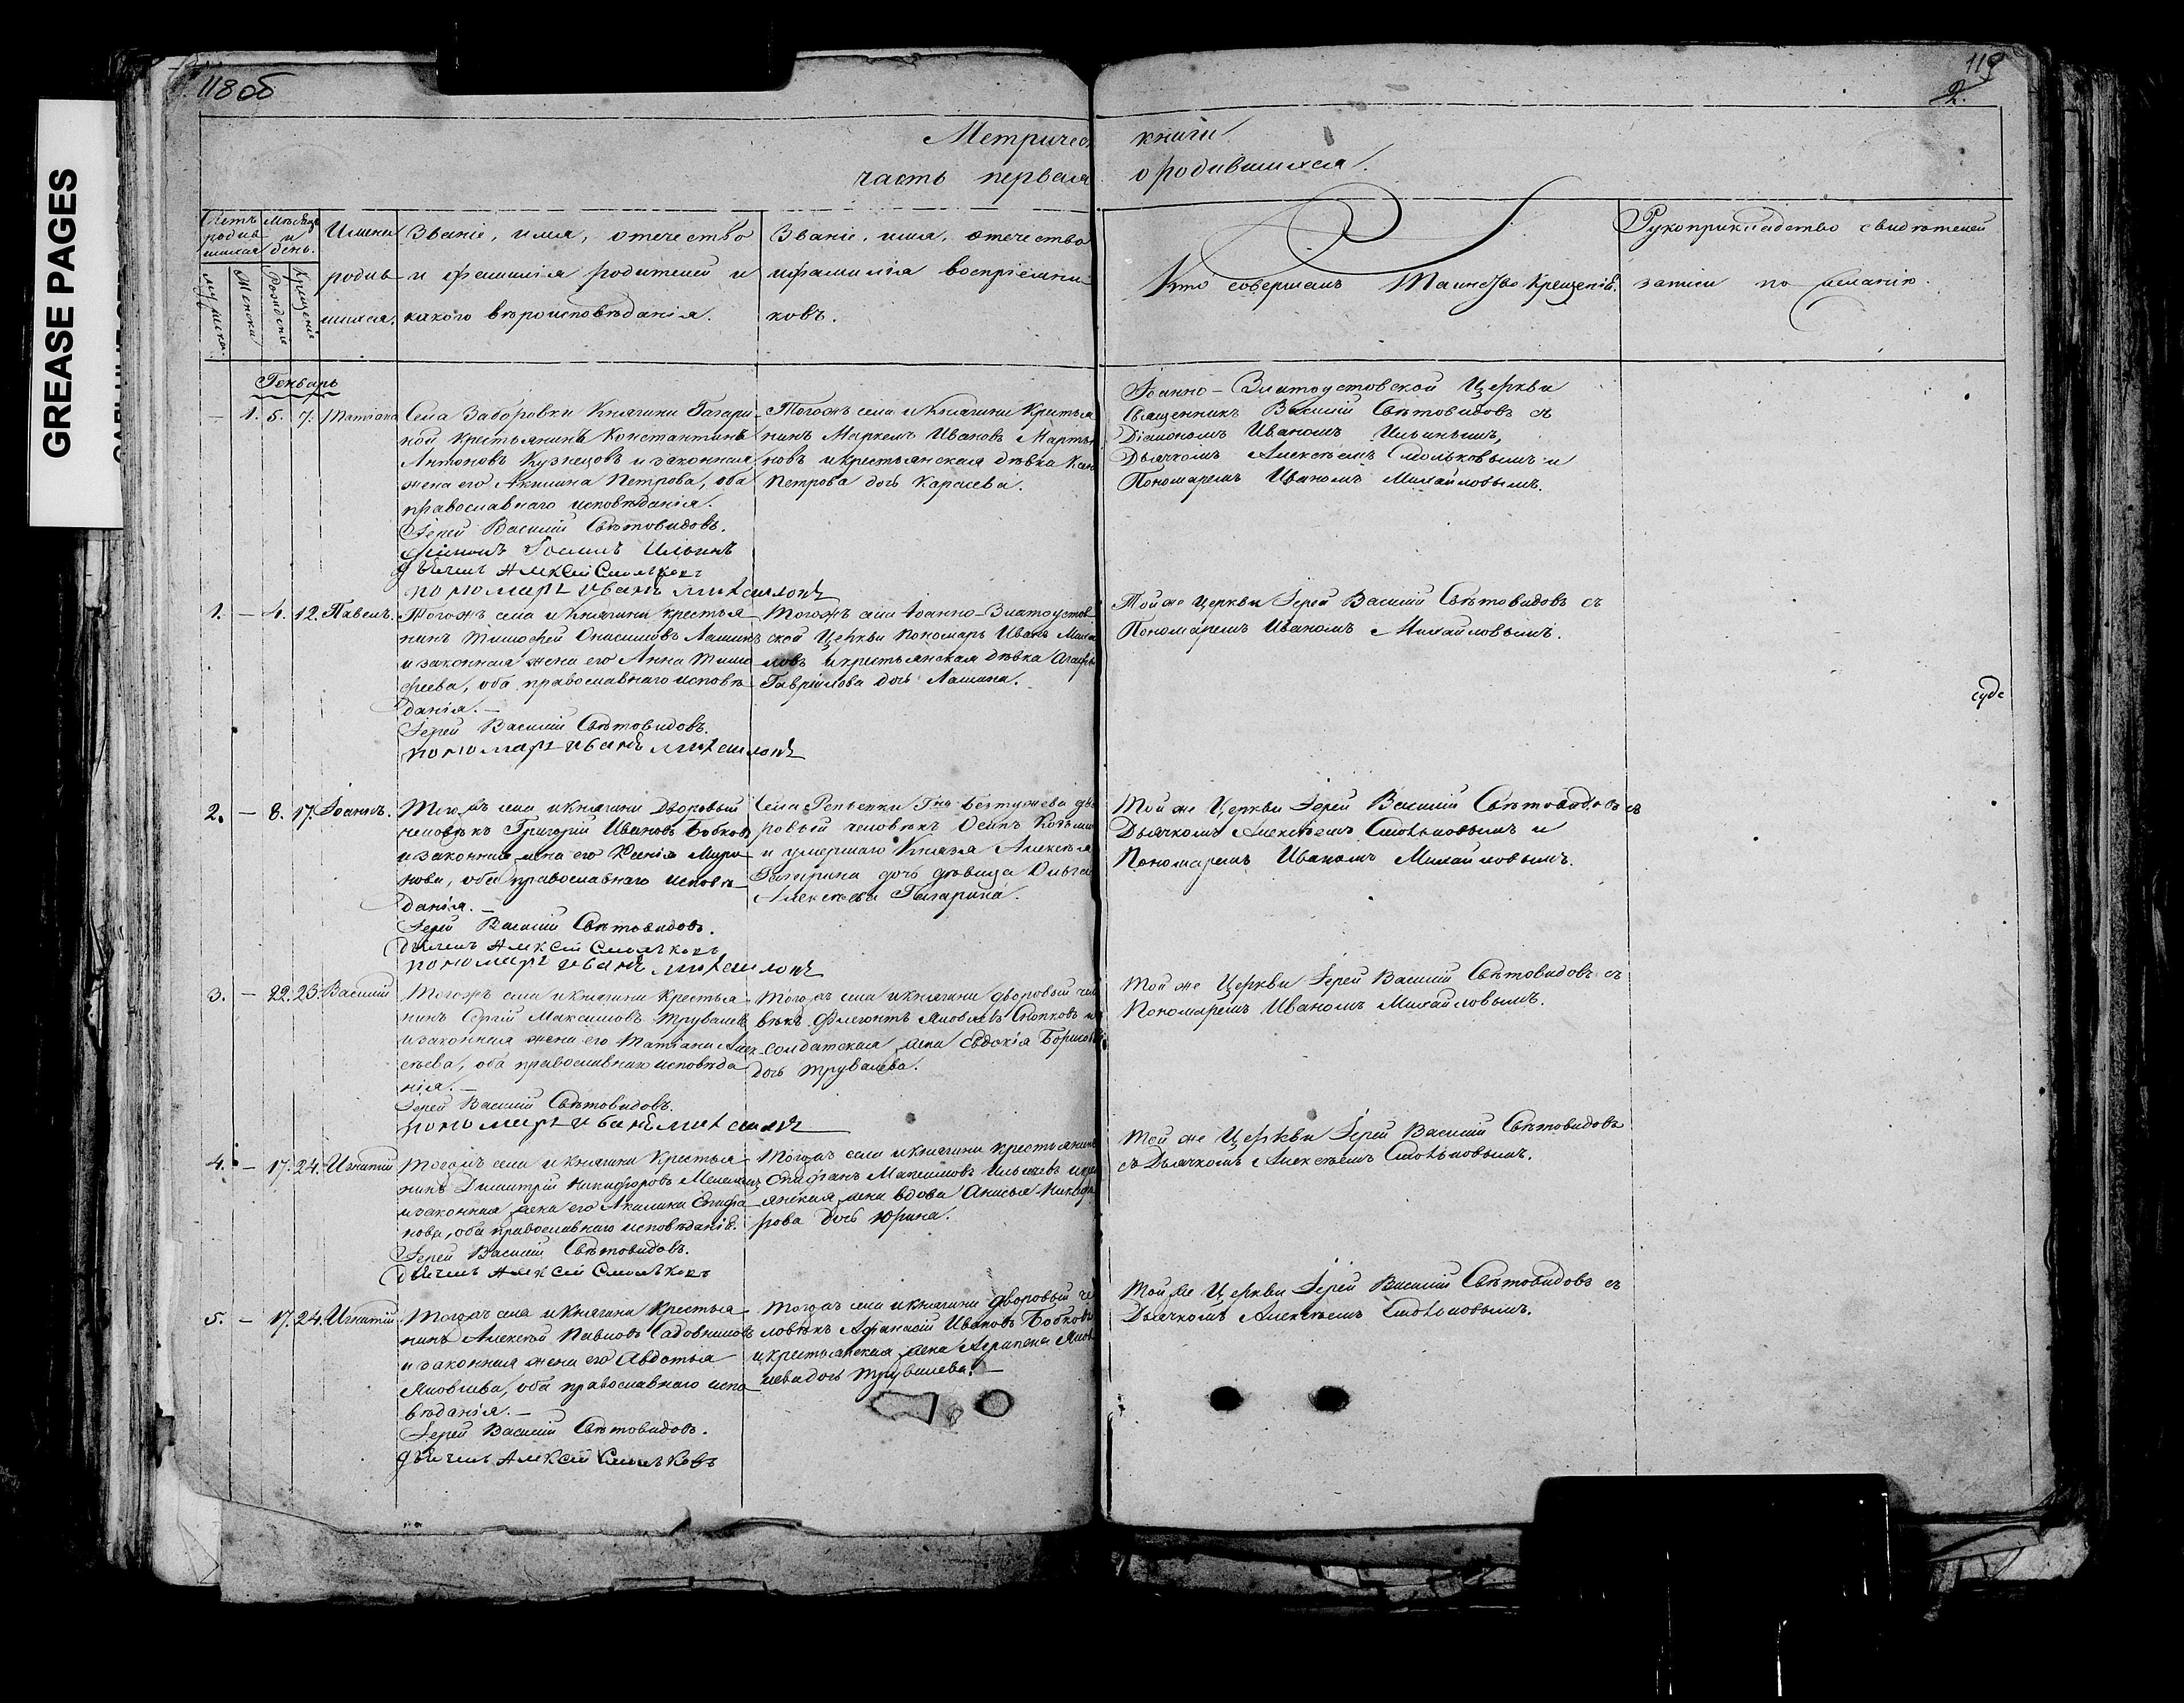 GREASE PAGES
118 об
119
2.
Метричес
часть первая
книги
о родившихся.
Счетъ родившихся
Мѣсяцъ и день.
Имена родившихся.
Званіе, имя, отечество
и фамилія родителей и
какого вѣроисповѣданія.
Званіе, имя, отечество
и фамилія воспріемни-
ковъ.
Кто совершалъ Таинство Крещенія.
Рукоприкладство свидѣтелей
записи по желанію.
Мужеска
Женска
Рожденіе
Крещеніе
Генварь
— 1. 5. 7. Татіана
Села Заборовки Княгини Гагари-
ной крестьянинъ Константинъ
Антоновъ Кузнецовъ и законная
жена его Акилина Петрова, оба
православнаго исповѣданія.
Іерей Василій Свѣтовидовъ.
Діаконъ Іоаннъ Ильинъ
дьячекъ Алексей Смольковъ
пономарь иванъ михаиловъ
Тогожъ села и Княгини Кристья
нинъ Маркелъ Ивановъ Марты
новъ и крестьянская дѣвка
Петрова дочь Карасева.
Іоанно-Златоустовской Церкви
Священникъ Василій Свѣтовидовъ съ
Діакономъ Иваномъ Ильинымъ,
Дьячкомъ Алексѣемъ Смольковымъ и
Пономаремъ Иваномъ Михайловымъ.
1. — 4. 12. Павелъ.
Тогожъ села и Княгини крестья-
нинъ Тимофей Онисимовъ Лашинъ
и законная жена его Анна Тимо-
феева, оба православнаго исповѣ-
данія. —
Іерей Василій Свѣтовидовъ.
пономарь иванъ михаиловъ
Тогожъ села Іоанно-Златоустов-
ской Церкви Пономарь Иванъ Миха
ловъ и крестьянская дѣвка Агафь
Гавриілова дочь Лашина.
Той же Церкви Іерей Василій Свѣтовидовъ съ
Пономаремъ Иваномъ Михайловымъ.
суде
2. — 8. 17. Іоаннъ.
Тогожъ села и княгини Дворовый
человѣкъ Григорій Ивановъ Бобковъ
и законная жена его Ксенія Миро-
нова, оба православнаго исповѣ-
данія. —
Іерей Василій Свѣтовидовъ.
Дьячекъ Алексей Смольковъ
пономарь иванъ михаиловъ
Села Репьевки Гна Бектужева дво
ровый человѣкъ Осипъ Козьми
и умершаго Князя Алексѣя
Гагарина дочь дѣвица Ольга
Алексѣева Гагарина.
Той же Церкви Іерей Василій Свѣтовидовъ съ
Дьячкомъ Алексѣемъ Смольковымъ и
Пономаремъ Иваномъ Михайловымъ.
3. — 22. 23. Василій
Тогожъ села и княгини крестья-
нинъ Сергій Максимовъ Трувалевъ
и законная жена его Татіана Алек-
сѣева, оба православнаго исповѣда
нія. —
Іерей Василій Свѣтовидовъ.
пономарь иванъ михаиловъ
Тогожъ села и княгини дворовый чел
вѣкъ Флегонтъ Яковлевъ Скопковъ и
солдатская жена Евдокія Борисов
дочь Трувалева.
Той же Церкви Іерей Василій Свѣтовидовъ съ
Пономаремъ Иваномъ Михайловымъ.
4. — 17. 24. Игнатій
Тогожъ села и княгини Крестья-
нинъ Димитрій Никифоровъ
и законная жена его Акилина Епифа-
нова, оба православнаго исповѣданія.
Іерей Василій Свѣтовидовъ.
Дьячекъ Алексей Смольковъ
Тогожъ села и княгини крестьянинъ
Епифанъ Максимовъ
янская жена вдова Анисья Никифо
рова дочь Юрина.
Той же Церкви Іерей Василій Свѣтовидовъ
съ Дьячкомъ Алексѣемъ Смольковымъ.
5. — 17. 24. Игнатій.
Тогожъ села и Княгини Крестья-
нинъ Алексѣй Павловъ Садовниковъ
и законная жена его Авдотья
Яковлева, оба православнаго испо-
вѣданія. —
Іерей Василій Свѣтовидовъ.
дьячекъ Алексей Смольковъ
Тогожъ села и княгини дворовый че
ловѣкъ Афанасій Ивановъ Бобковъ
и крестьянская жена Агрипена Яков
лева дочь Трувалева. —
Той же Церкви Іерей Василій Свѣтовидовъ съ
Дьячкомъ Алексѣемъ Смольковымъ.